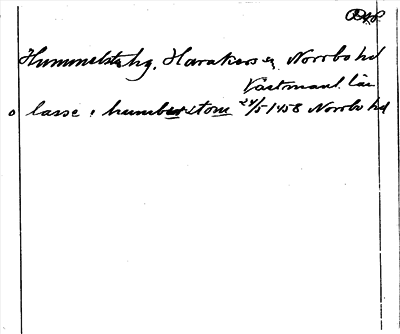 DAP
Hummelsta hg. Harakers sn Norrbo hd
Västmanl. län
o lasse i humblxstom 24/5 1458 Norrbo hd